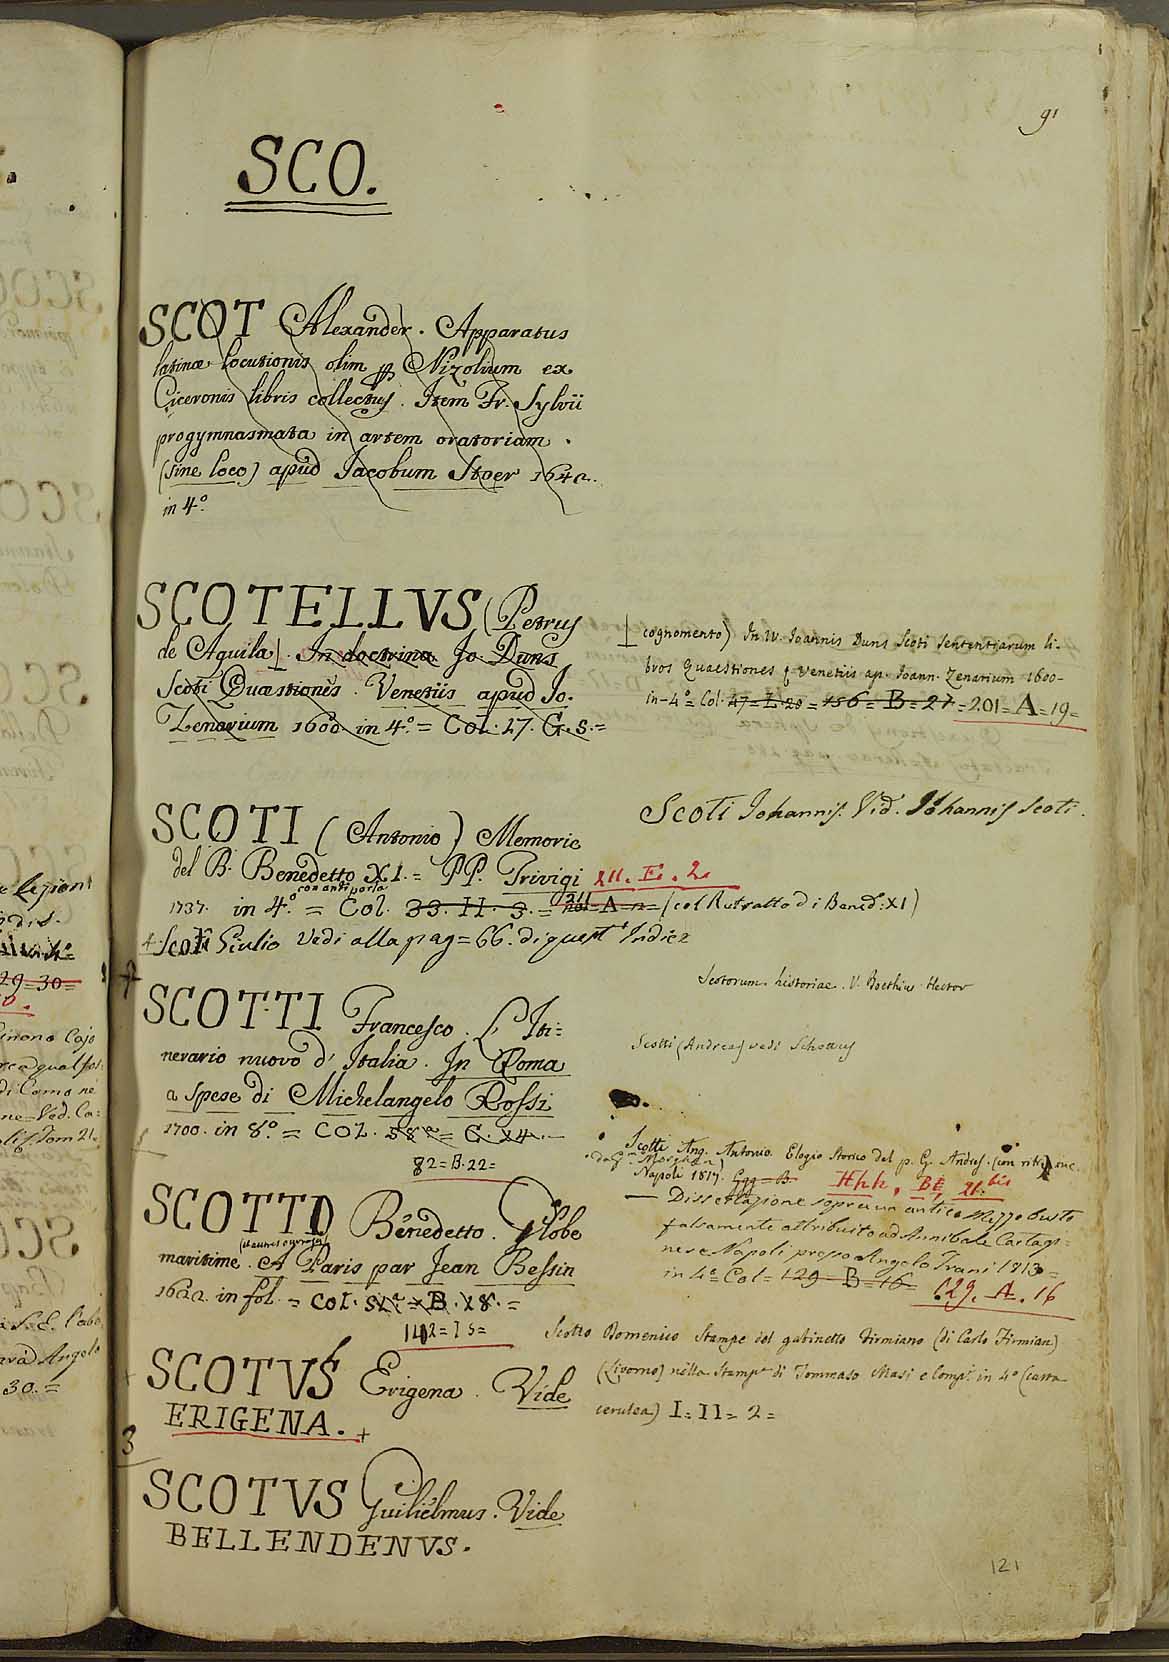 91
SCO.
SCOT Alexander. Apparatus
latinæ locutionis olim Nizolium ex
Ciceronis libris collectus. Item Fr. Sylvii
progymnasmata in artem oratoriam.
(sine loco) apud Jacobum Stoer 1642.
in 4.º
SCOTELLVS (Petrus
de Aquila ⊥. In doctrina Jo. Duns
Scoti Quæstiones. Venetiis apud Jo.
Zenarium 1600. in 4.º = Col. 27. G. 5. =
⊥ cognomento) In IV. Joannis Duns Scoti sententiarum li-
bros Quaestiones Venetiis ap. Joann. Zenarium 1600-
in-4º = Col. 47 = L. 20 = 156 = B = 27 = 201 = A = 19 =
SCOTI (Antonio) Memorie
del B. Benedetto XI. = PP. Trivigi XII. E. 2.
con antiporta
1737. in 4.º = Col. 33. II. 3. = A = (col Ritratto di Bened: XI)
Scoti Giulio Vedi alla pag = 66. di quest' Indice
Scoti Johannis. Vid. Johannis Scoti.
Scotorum historiae. V. Boethius Hector
Scotti (Andrea) vedi Schottus
SCOTTI Francesco. L' Iti=
nerario nuovo d' Italia. In Roma
a spese di Michelangelo Rossi
1700. in 8.º = COL. G. 14.
82 = B. 22 =
Scotti Ang. Antonio. Elogio storico del p. G. Andres. (con ritr. inc.
da G. Morghen)
Napoli 1817. Ggg = B Hhh. BE, 21. bis
— Dissertazione sopra un antico Mezzo busto
falsamente attribuito ad Annibale Cartagi-
nese Napoli presso Angelo Trani 1813 =
in 4º Col = 129 - B = 16 = 129. A. 16
SCOTTO Benedetto. Globe
maritime. A Paris par Jean Bessin
1622. in fol. = COL. B. 18. =
142 = I 5 =
Scotto Domenico Stampe del gabinetto Firmiano (di Carlo Firmian)
(Livorno) nella Stamp.ª di Tommaso Masi e Comp.i in 4º (carta
cerulea) I = II = 2 =
SCOTVS Erigena. Vide
ERIGENA. +
SCOTVS Guilielmus. Vide
BELLENDENVS.
121